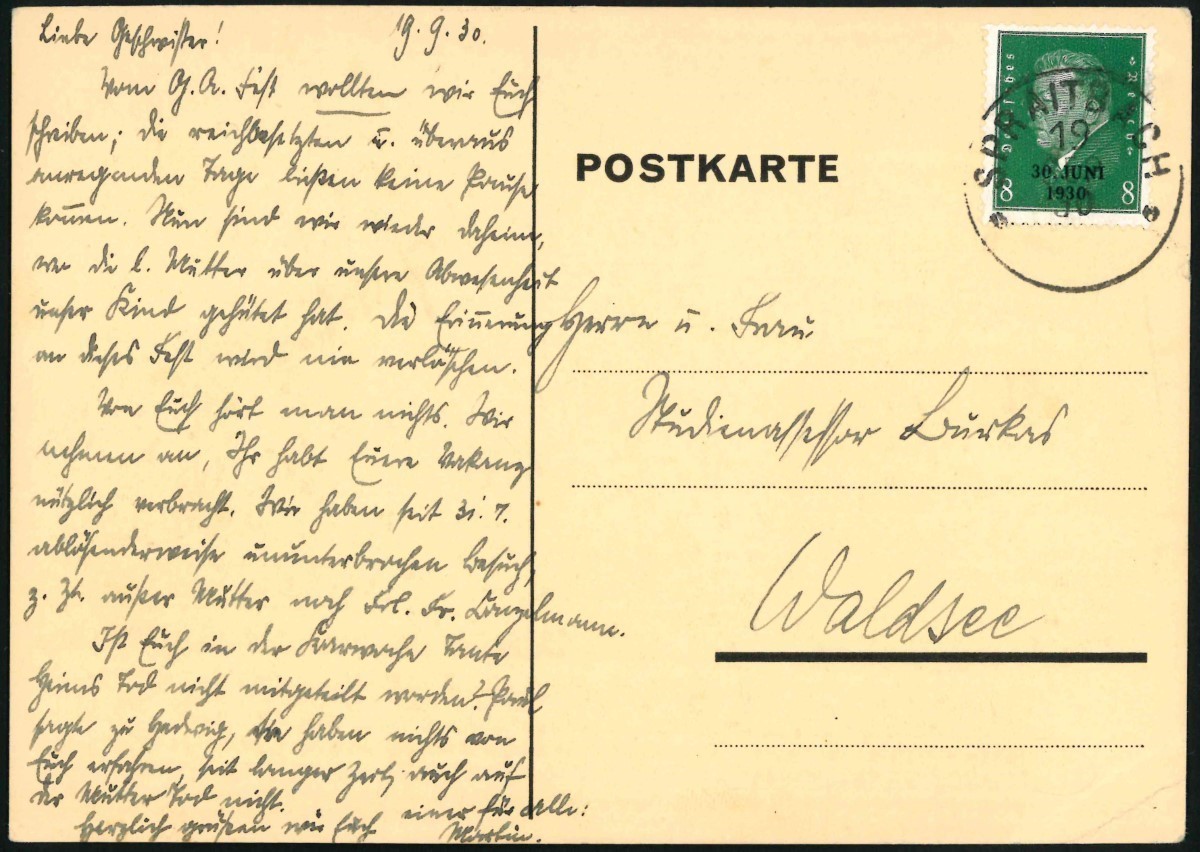 Liebe Geschwister! 19.9.30.
Vom G. A. Fest wollten wir Euch
schreiben; die reichbesetzten u. überaus
anregenden Tage ließen keine Pause
kommen. Nun sind wir wieder daheim,
wo die l. Mutter über unsere Abwesenheit
unser Kind gehütet hat. Die Erinnerung
an dieses Fest wird nie verlöschen.
Von Euch hört man nichts. Wir
nehmen an, Ihr habt Euere Vakanz
nützlich verbracht. Wir haben seit 31. 7.
ablösenderweise ununterbrochen Besuch,
z. Zt. außer Mutter noch Frl. Fr. Canzelmann.
Ist Euch in der Karwoche Tante
Heims Tod nicht mitgeteilt worden? Paul
sagte zu Hedwig, sie haben nichts von
Euch erfahren seit langer Zeit, auch auf
der Mutter Tod nicht.
Herzlich grüßen wir Euch einer für alle:
Martin.
POSTKARTE
Deutsches Reich
30. JUNI
1930
8 8
SPRAITBACH
19
30
Herrn u. Frau
Studienassessor Burkas
Waldsee